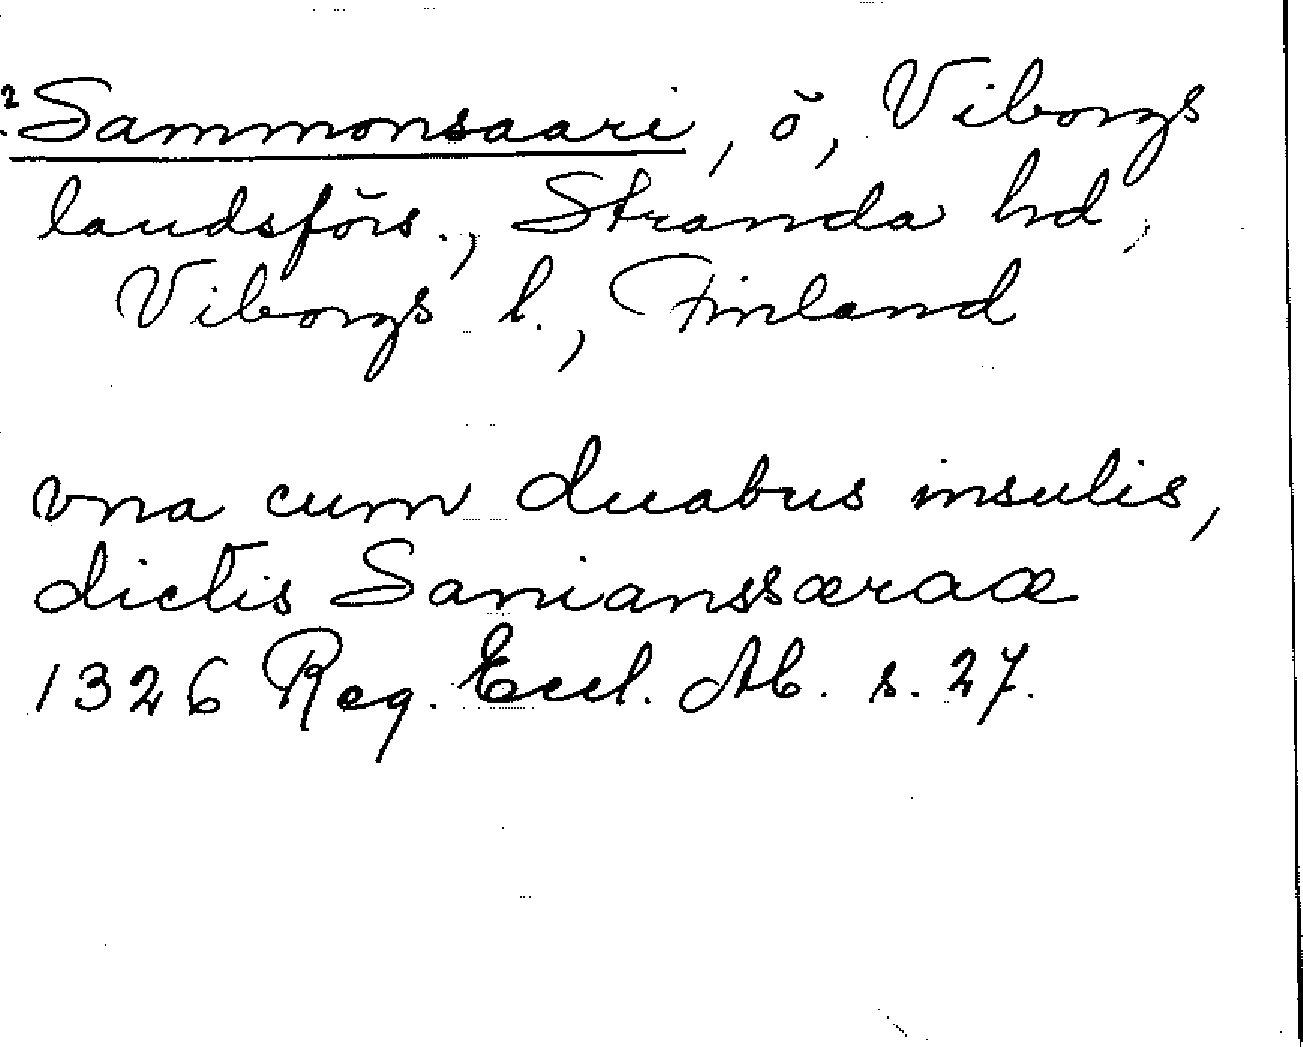 ? Sammonsaari, ö, Viborgs
landsförs., Stranda hd,
Viborgs l., Finland
vna cum duabus insulis,
dictis Samianssæraæ
1326 Reg. Eccl. Ab. s. 27.